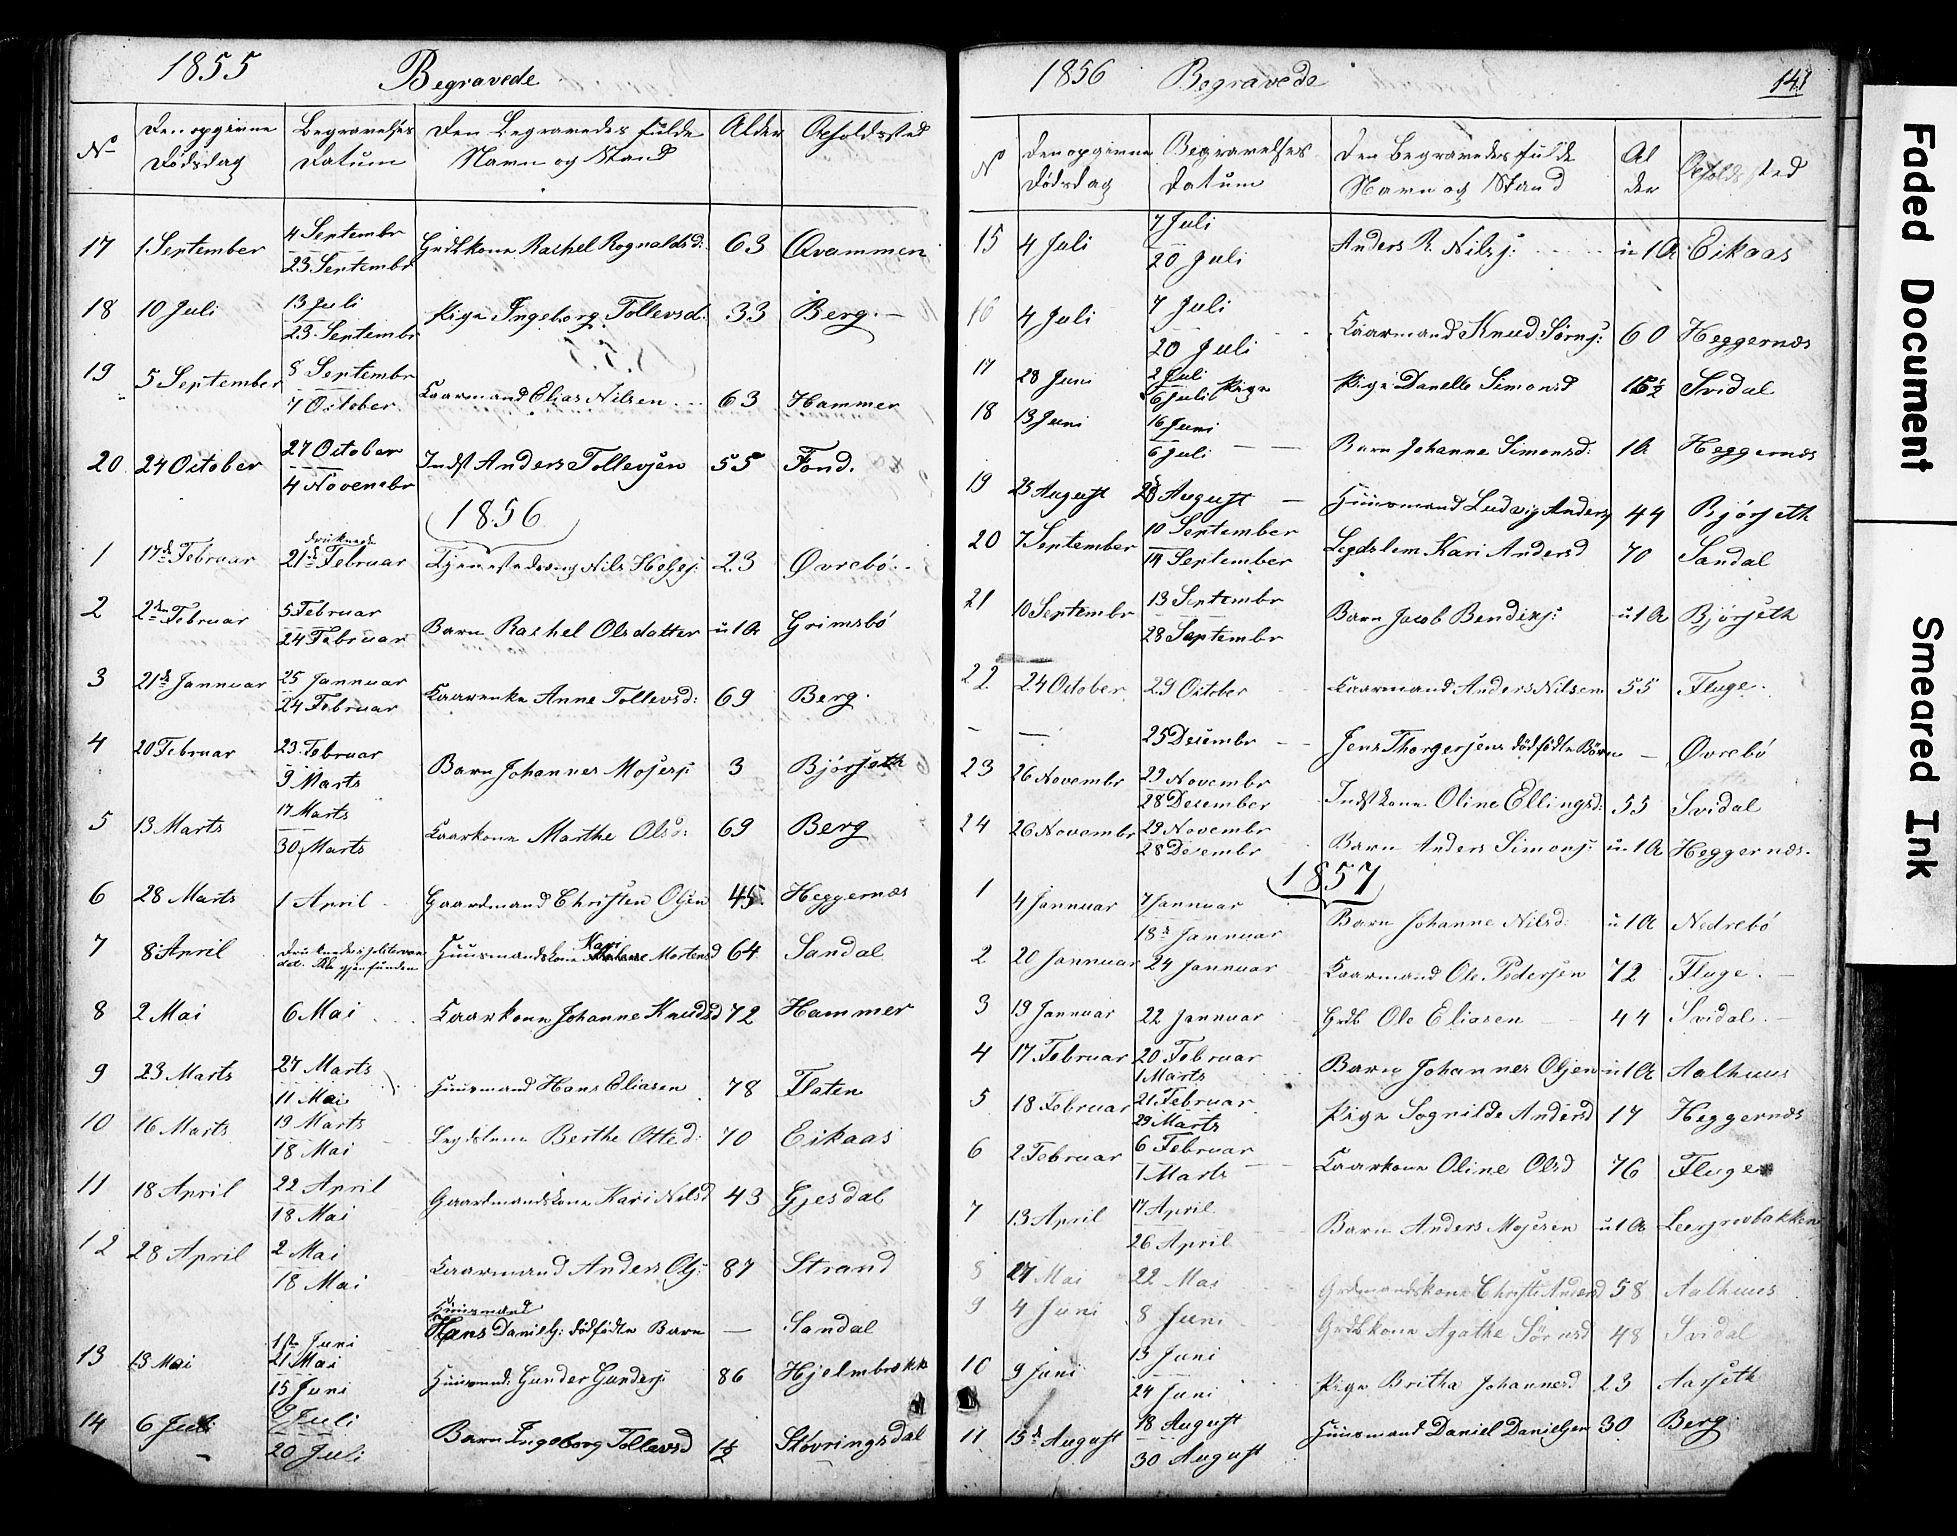 1855 Begravede
No Den opgivne Dødsdag Begravelses Datum Den Begravedes fulde Navn og Stand Alder Opholdssted
17 1. September 4 Septembr 23. Septembr Grdbkone Rachel Rognaldsd: 63 Qvammen
18 10 Juli 13 Juli 23. Septembr Pige Ingeborg Tollevsd. 33 Berg. –
19 5 September 8 Septembr 7 October Kaarmand Elias Nilsen 63 Hammer
20 24 October 27 October 4 Novembr Indst Anders Tollevsen 55 Fond.
1856
1 17de Februar druknede 21de Februar Tjenestedreng Nils Helgej: 23 Øvrebö
2 2den Februar 5 Februar 24 Februar Barn Rachel Olsdatter u 1 A Grimsbö
3 21de Jannuar 25 Jannuar 24 Februar Kaarenke Anne Tollevsd: 69 Berg.
4 20 Februar 23. Februar 9 Marts Barn Johannes Mosesj: 3 Bjørseth
5 13 Marts 17 Marts 30 Marts Kaarkone Marthe Olsd: 69 Berg
6 28 Marts 1 April Gaardmand Christen Olsen 45 Heggernæs
7 8 April Huusmandskone Kari Mortensd 64 Sandal
8 2 Mai 6 Mai Kaarkone Johanne Knudsd 72 Hammer
9 23 Marts 27 Marts 11 Mai Huusmand Hans Eliasen 78 Flaten
10 16 Marts 19 Marts 18 Mai Legdslem Berthe Otted: 70 Eikaas
11 18 April 22 April 18 Mai Gaardmandskone Kari Nilsd 43 Gjesdal
12 28 April 2 Mai 18 Mai Kaarmand Anders Olsj: 87 Strand
1ste Juni Huusmand Hans Danielsj: dödfödte Barn — Sandal
13 13 Mai 21 Mai 15 Juni Huusmd: Gunder Gundersj: 86 Hjelmbrekk
14 6 Juli 9 Juli 20 Juli Barn Ingeborg Tollevsd 1½ Støvringsdal
1856 Begravede 141
N Den opgivne Dødsdag Begravelses Datum Den Begravedes fulde Navn og Stand Alder Opholdssted
15 4 Juli 7 Juli 20 Juli Anders R. Nilsj: u 1 A Eikaas
16 4 Juli 7 Juli 20 Juli Kaarmand Knud Sørnsj: 60 Heggernæs
17 28 Juni 2 Juli 6 Juli Pige Pige Danelle Simonsd 15½ Svidal
18 13 Juni 16 Juni 6 Juli Barn Johanne Simonsd: 1 A Heggernæs
19 23 August 28 August Huusmand Ludvig Andersj 44 Bjørseth
20 7 September 10 September 14 September Legdslem Kari Andersd 70 Sandal
21 10 Septembr 13 Septembr 28 Septembr Barn Jacob Bendixj: u 1 A Bjørseth
22 24 October 29 October Kaarmand Anders Nilsen 55 Fluge.
— — 25 Desembr Jens Thorgersens dödfödte Börn — Øvrebö
23 26 Novembr 29 Novembr 28 Desember Indstkone Oline Ellingsd: 55 Svidal
24 26 Novembr 29 Novembr 28 Desembr Barn Anders Simonsj: u 1 A Heggernæs.
1857
1 4 Jannuar 7 Jannuar 18de Jannuar Barn Johanne Nilsd: u 1 A Nedrebö
2 20 Jannuar 24 Jannuar Kaarmand Ole Pedersen 72 Fluge. —
3 19 Jannuar 22 Jannuar Grdb Ole Eliasen 44 Svidal. —
4 17 Februar 20 Februar 1 Marts Barn Johannes Olsen u 1 A Aalhuus
5 18 Februar 21 Februar 29 Marts Pige Sognilde Andersd 17 Heggernæs
6 2 Februar 6 Februar 1 Marts Kaarkone Oline Olsd 76 Fluge
7 13 April 17 April 26 April Barn Anders Mosesen u 1 A
8 27 Mai 22 Mai Grdmandskone Christi Andersd 58 Aalhuus
9 4 Juni 8 Juni Grdbkone Agathe Sörnsd 48 Svidal
10 9 Juni 13 Juni 24 Juni Pige Britha Johannesd 23 Aarseth
11 15de August 18 August 30 August Huusmand Daniel Danielsen 30 Berg.
Faded Document
Smeared Ink